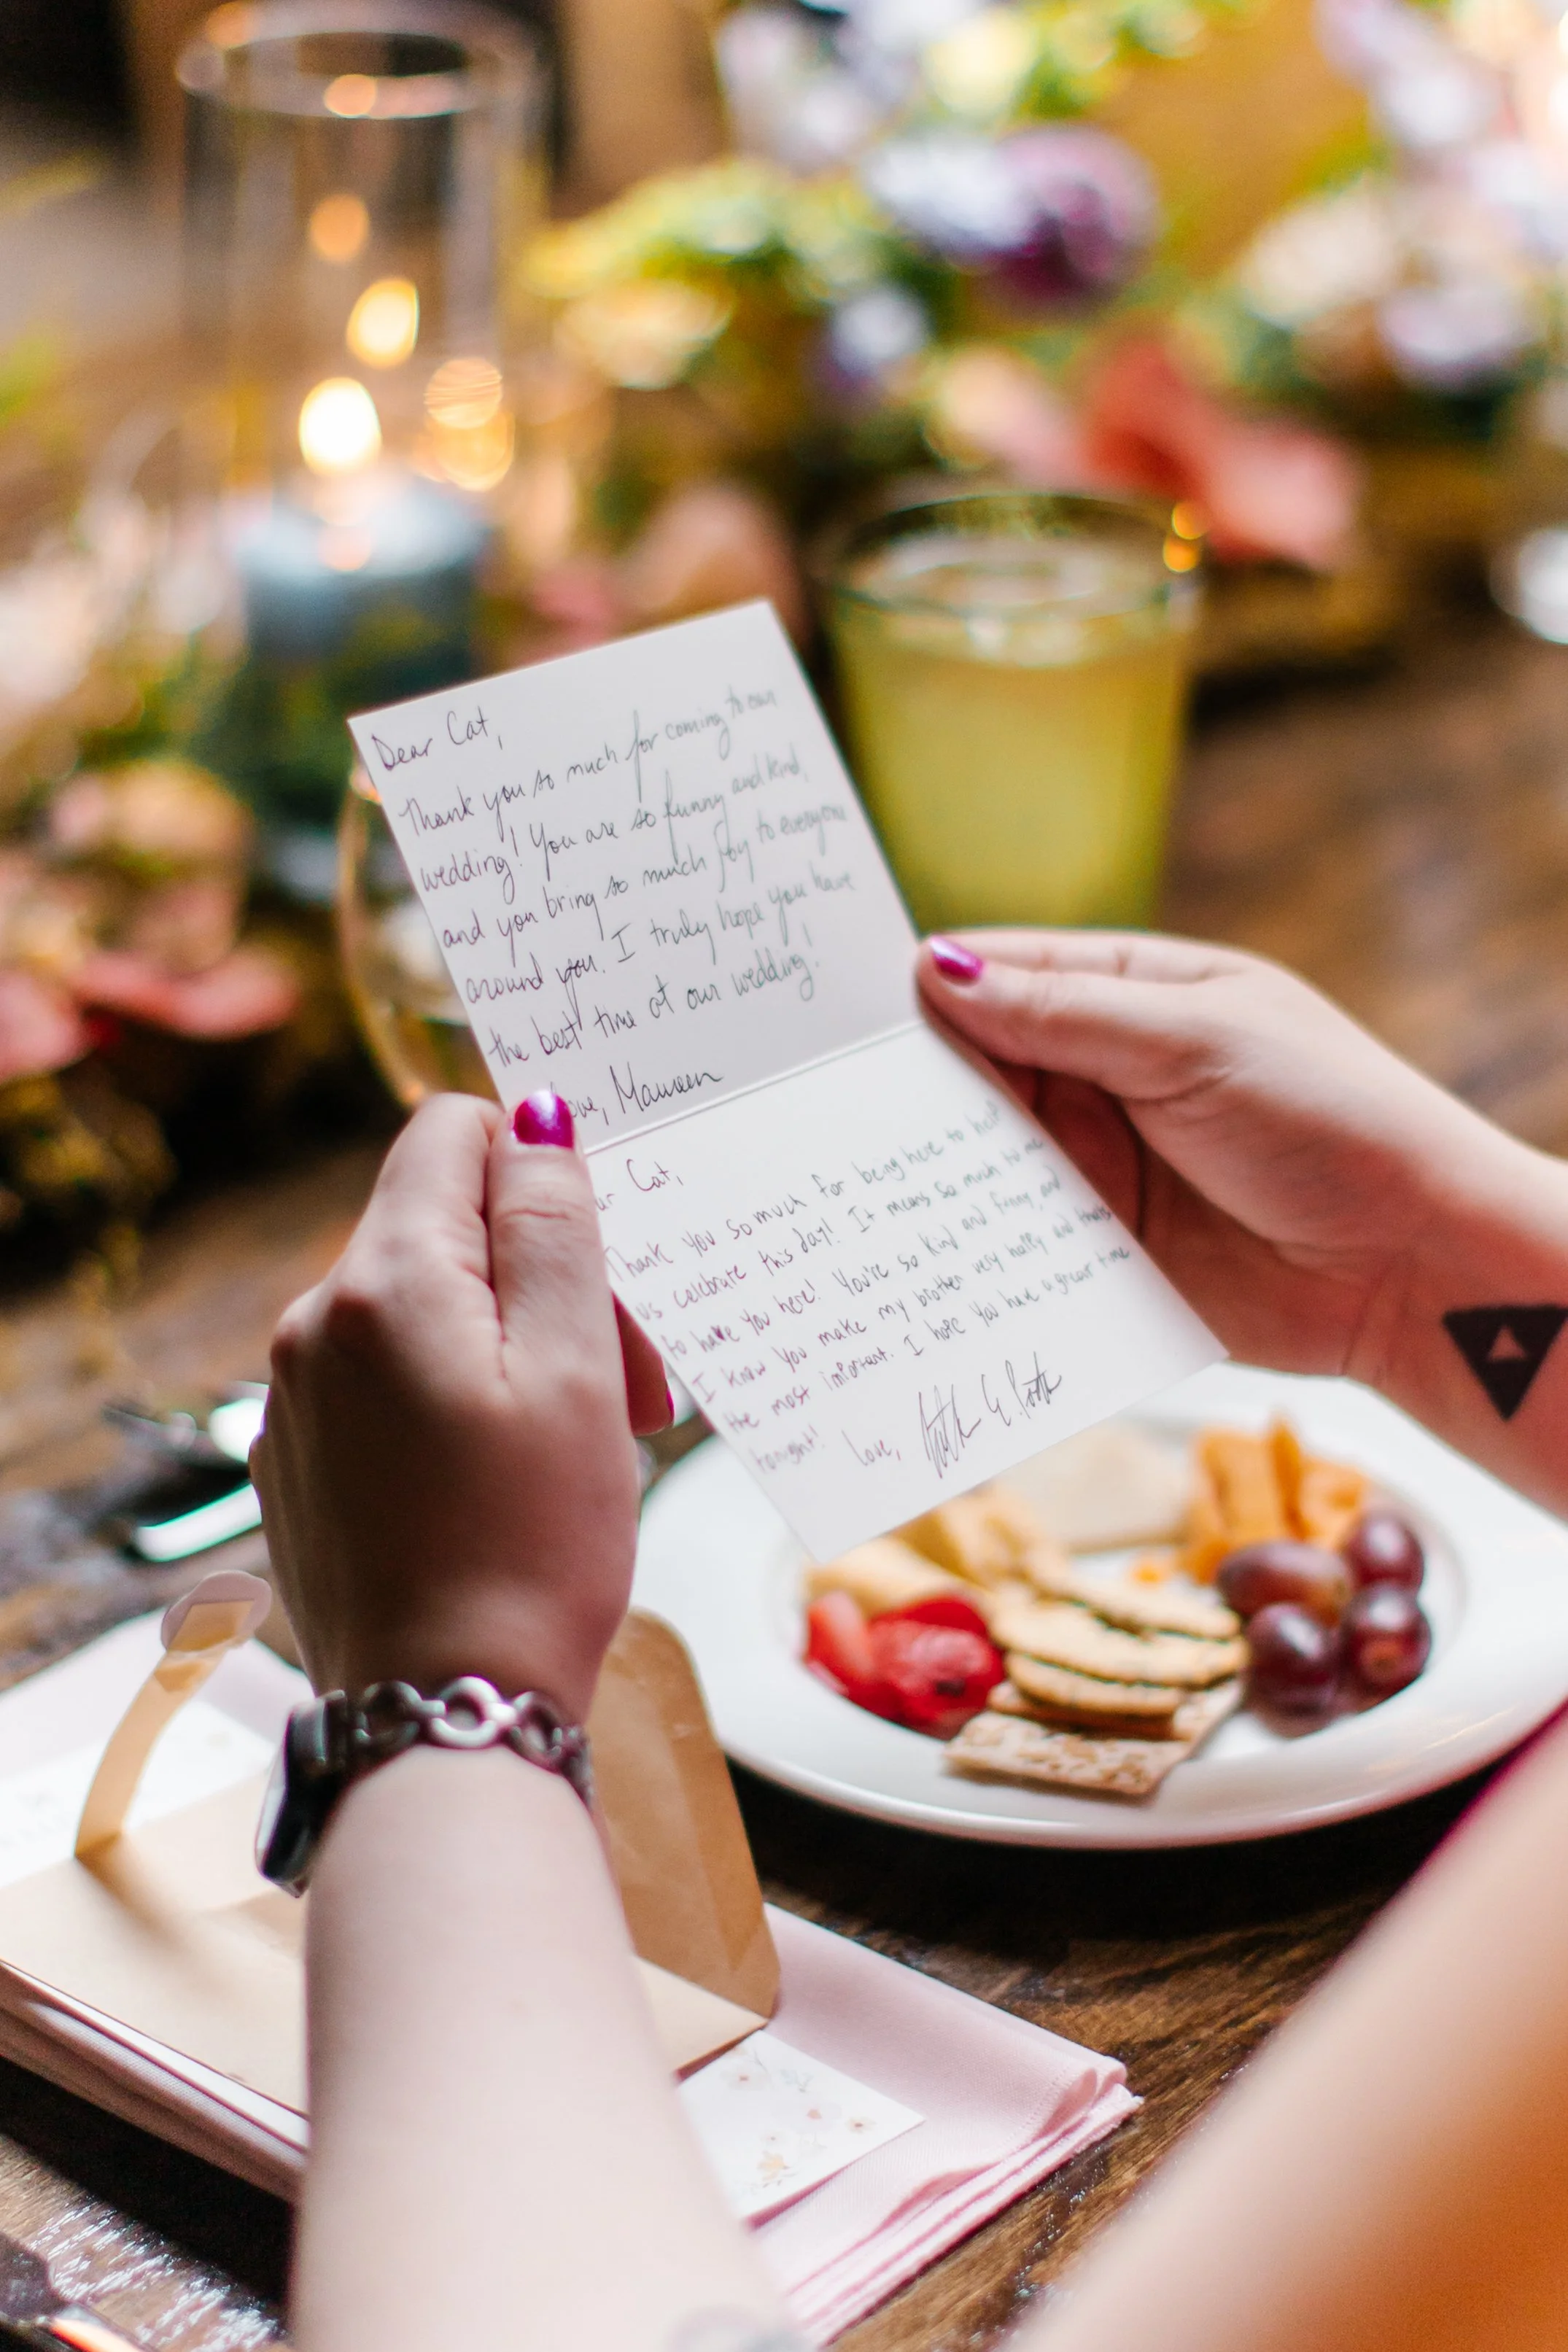 Dear Cat,
Thank you so much for coming to our
wedding! You are so funny and kind,
and you bring so much joy to everyone
around you. I truly hope you have
the best time at our wedding!
ove, Maureen
ar Cat,
Thank you so much for being here to help
us celebrate this day! It means so much to me
to have you here! You're so kind and funny, and
I know you make my brother very happy and that's
the most important. I hope you have a great time
tonight! Love,